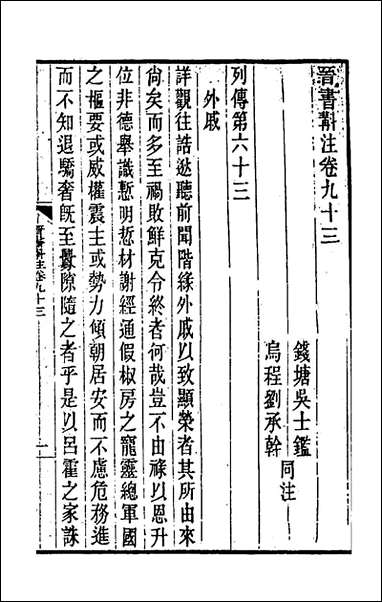 晉書斠注卷九十三
錢塘吳士鑑
烏程劉承幹
同注
列傳第六十三
外戚
詳觀往誥逖聽前聞階緣外戚以致顯榮者其所由來
尙矣而多至禍敗鮮克令終者何哉豈不由祿以恩升
位非德舉識慙明悊材謝經通假椒房之寵靈總軍國
之樞要或威權震主或勢力傾朝居安而不慮危務進
而不知退驕奢旣至釁隙隨之者乎是以呂霍之家誅
晉書斠注卷九十三
一